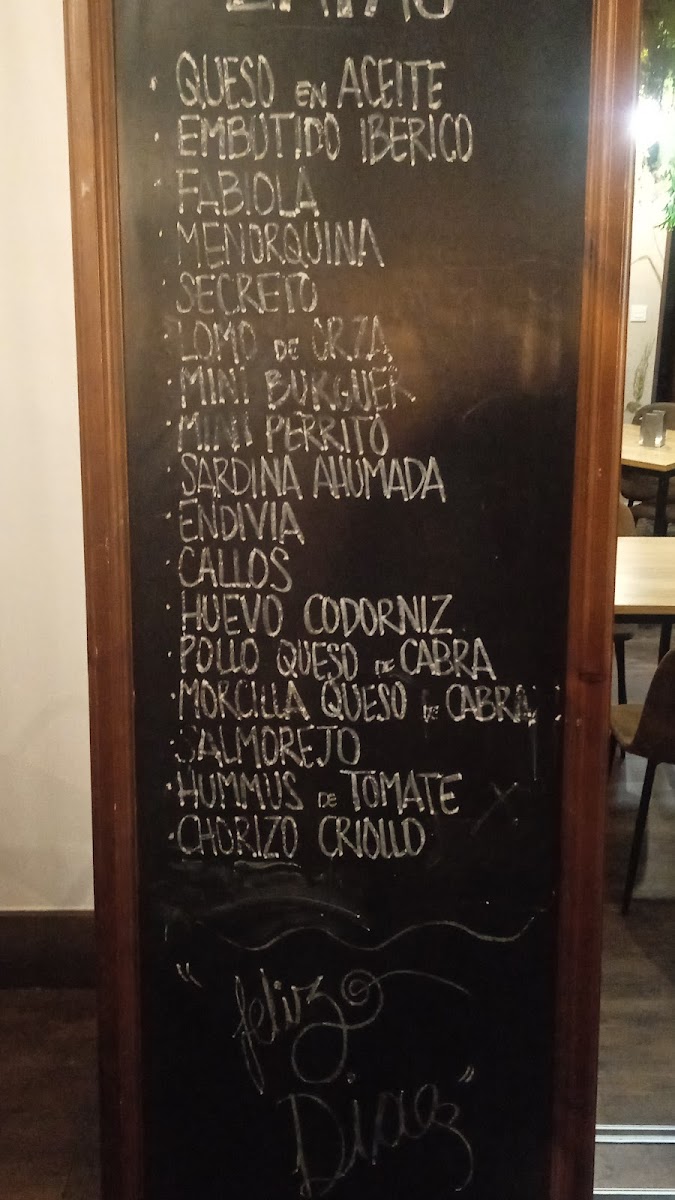 · QUESO EN ACEITE
· EMBUTIDO IBERICO
· FABIOLA
· MENORQUINA
· SECRETO
· LOMO DE ORZA
· MINI BURGUER
· MINI PERRITO
· SARDINA AHUMADA
· ENDIVIA
· CALLOS
· HUEVO CODORNIZ
· POLLO QUESO DE CABRA
· MORCILLA QUESO DE CABRA
· SALMOREJO
· HUMMUS DE TOMATE
· CHORIZO CRIOLLO
"feliz
Diaz"